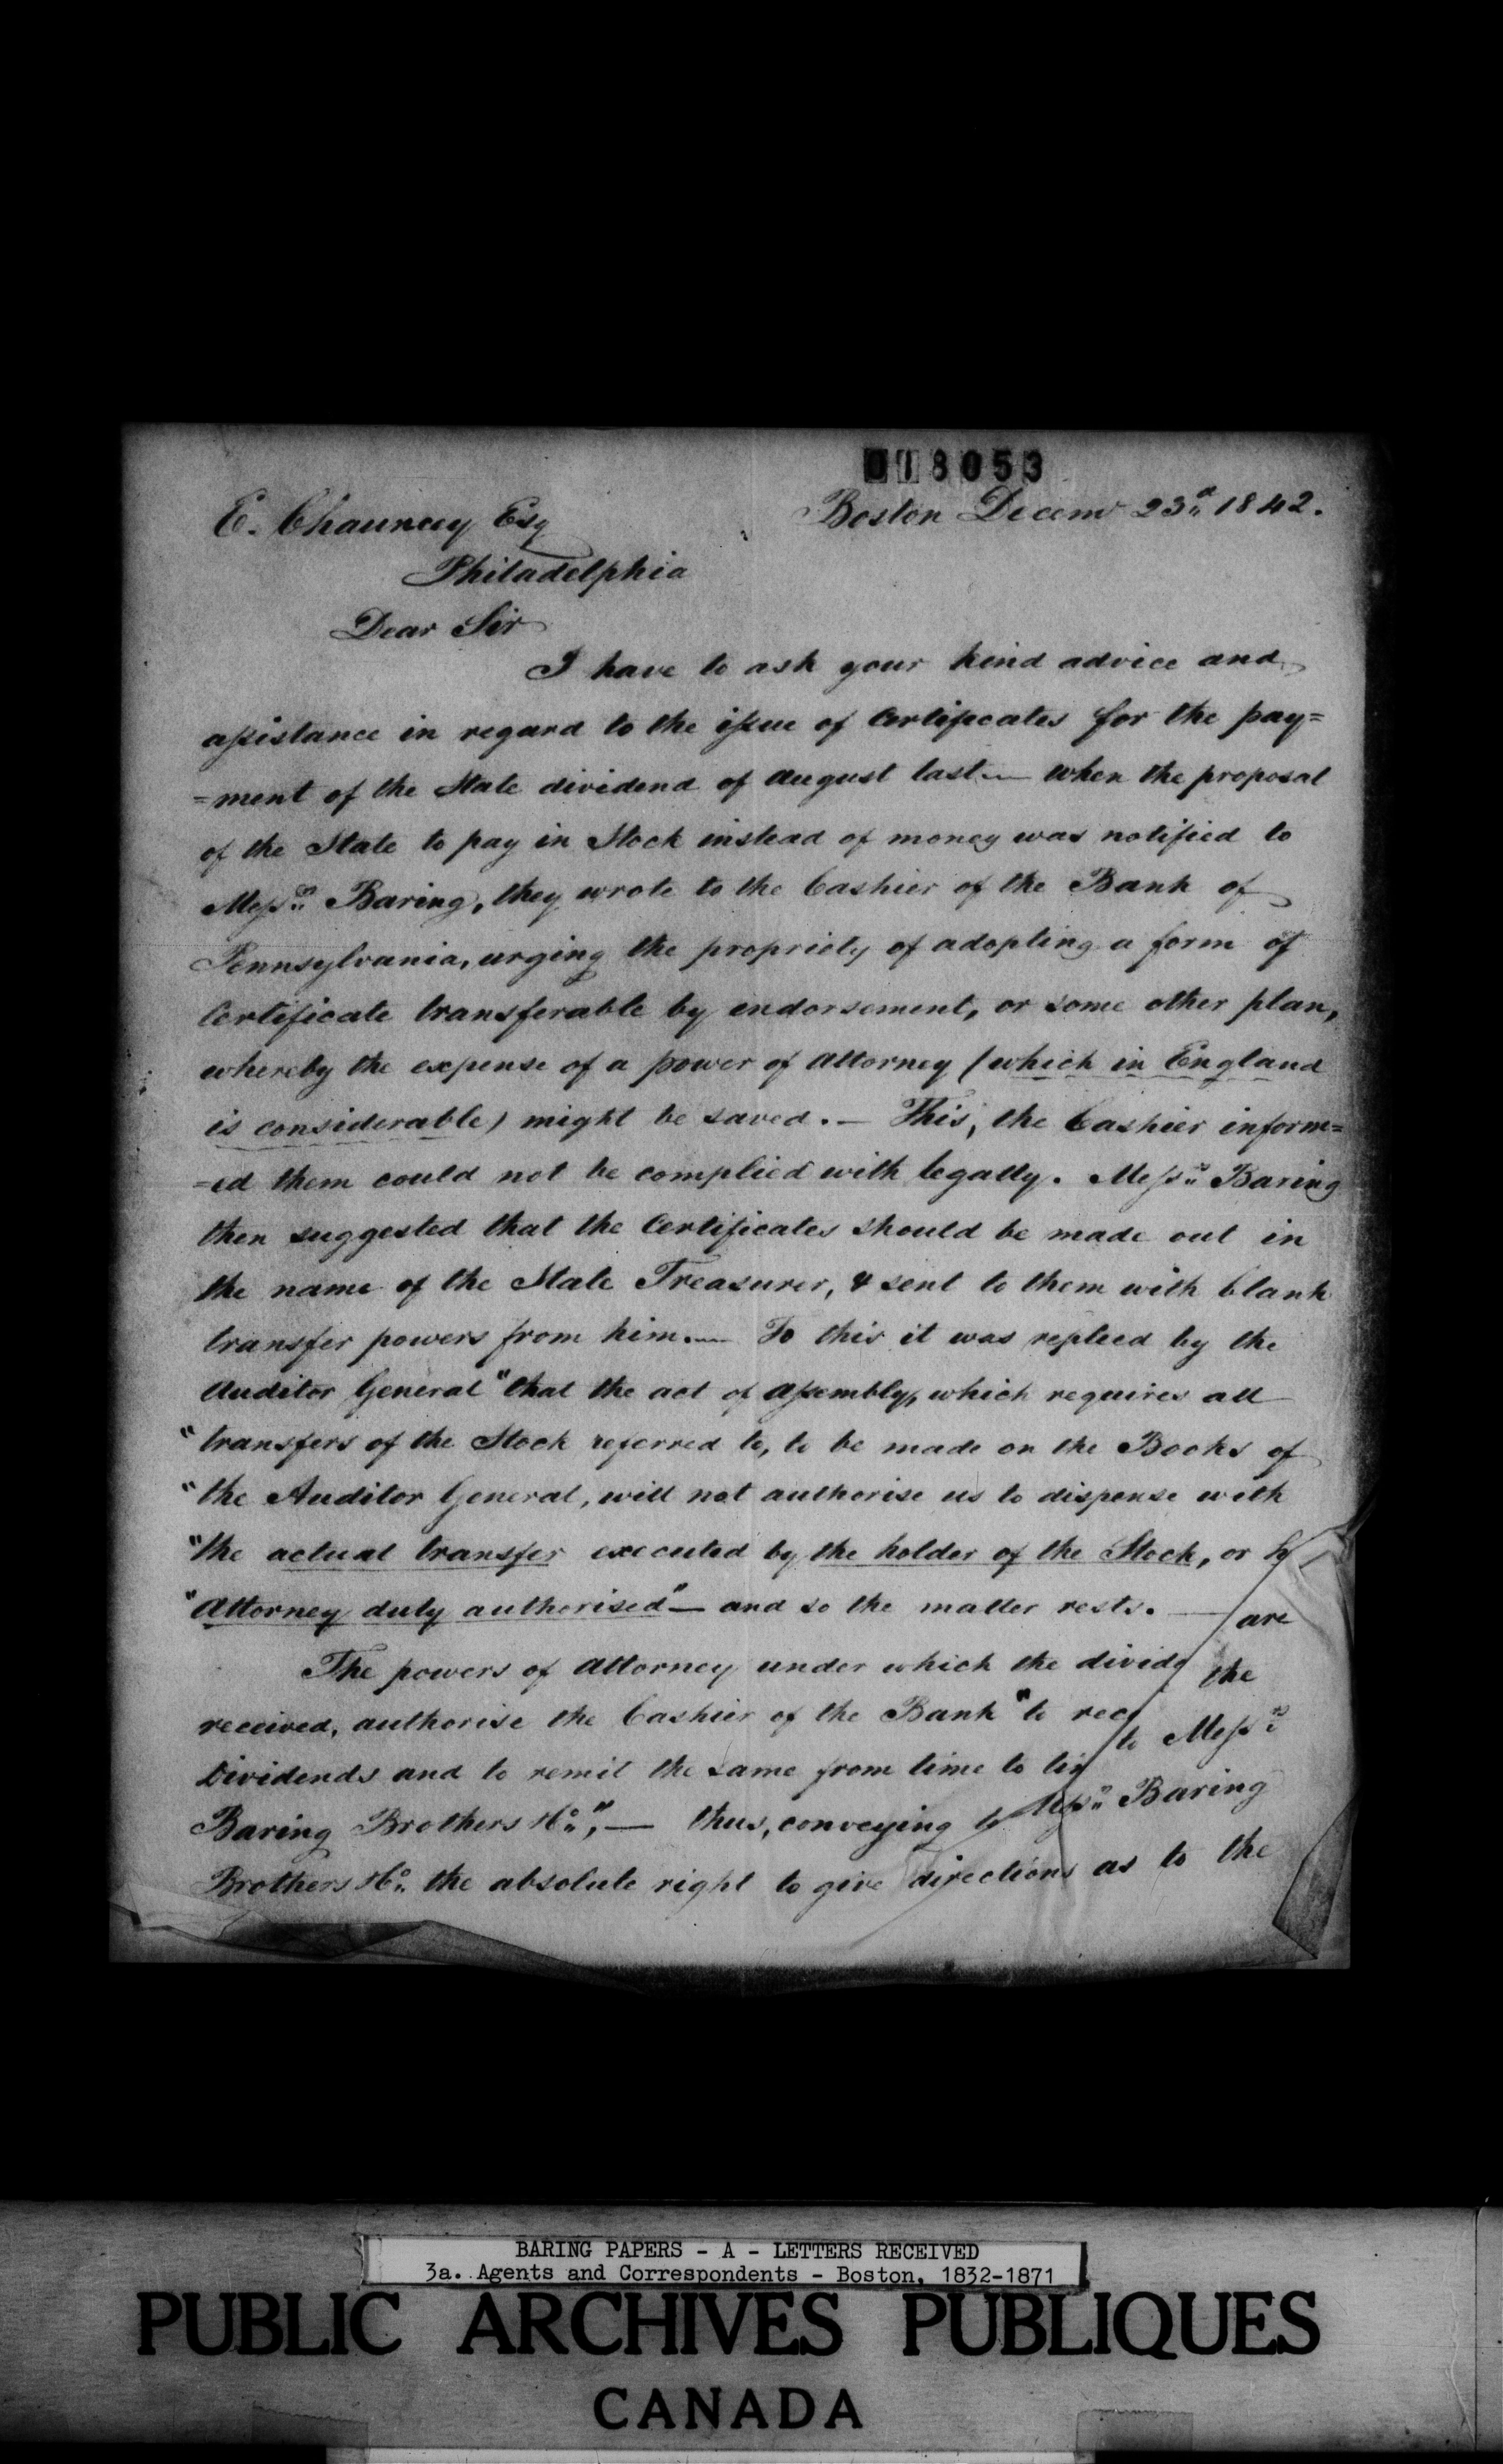 018053
Boston Decemr 23d 1842.
E. Chauncey Esq
Philadelphia
Dear Sir
I have to ask your kind advice and
assistance in regard to the issue of Certificates for the pay=
=ment of the State dividend of August last.— When the proposal
of the State to pay in Stock instead of money was notified to
Messrs Baring, they wrote to the Cashier of the Bank of
Pennsylvania, urging the propriety of adopting a form of
Certificate transferable by endorsement, or some other plan,
whereby the expense of a power of Attorney (which in England
is considerable) might be saved.— This, the Cashier inform=
=ed them could not be complied with legally. Messrs Baring
then suggested that the Certificates should be made out in
the name of the State Treasurer, & sent to them with blank
transfer powers from him.— To this it was replied by the
Auditor General "that the act of Assembly, which requires all
"transfers of the Stock referred to, to be made on the Books of
"the Auditor General, will not authorise us to dispense with
"the actual transfer executed by the holder of the Stock, or by
"Attorney duly authorised"— and so the matter rests.—
The powers of Attorney under which the divid are
received, authorise the Cashier of the Bank "to rec the
Dividends and to remit the same from time to ti to Messrs
Baring Brothers & Co.",— thus, conveying to Messrs Baring
Brothers & Co. the absolute right to give directions as to the
BARING PAPERS - A - LETTERS RECEIVED
3a. Agents and Correspondents - Boston, 1832-1871
PUBLIC ARCHIVES PUBLIQUES
CANADA